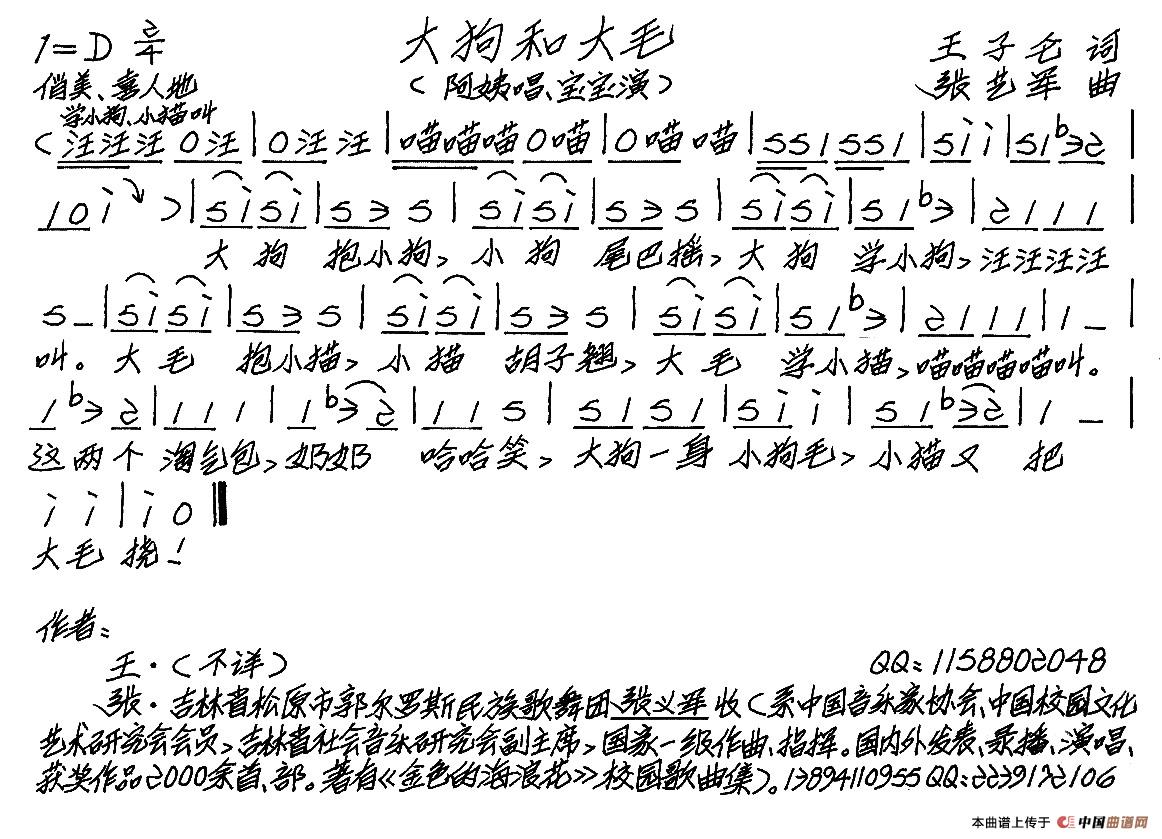 1=D 2/4 大狗和大毛 王子仑 词
俏美、喜人地 (阿姨唱、宝宝演) 张艺军 曲
学小狗、小猫叫
(汪汪汪 0汪|0汪汪|喵喵喵0喵|0喵喵|551551|5i i|51b32|
10 i )|5i5i|535|5i5i|535|5i5i|51b3|2111|
大狗 抱小狗, 小狗 尾巴摇, 大狗 学小狗, 汪汪汪汪
5-|5i5i|535|5i5i|535|5i5i|51b3|2111|1-|
叫。大毛 抱小猫, 小猫 胡子翘, 大毛 学小猫, 喵喵喵喵叫。
1b32|111|1b32|115|5151|5i i|51b32|1-|
这两个 淘气包, 奶奶 哈哈笑, 大狗一身 小狗毛, 小猫又 把
i i|i 0‖
大毛 挠!
作者:
王·(不详) QQ:1158802048
张·吉林省松原市郭尔罗斯民族歌舞团张义军收(系中国音乐家协会、中国校园文化
艺术研究会会员,吉林省社会音乐研究会副主席,国家一级作曲、指挥。国内外发表、录播、演唱、
获奖作品2000余首、部。著有《金色的海浪花》校园歌曲集)。13894110955 QQ:2239172106
本曲谱上传于 中国曲谱网